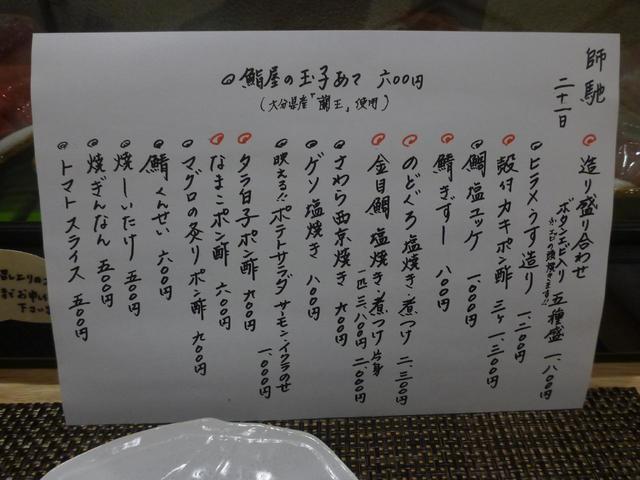 師馳
二十一日
鮨屋の玉子あて 六〇〇円
(大分県産「蘭王」使用)
造り盛り合わせ
ボタンエビ入り 五種盛 一、八〇〇円
ヒラメうす造り 一、二〇〇円
殻付カキポン酢 三ヶ 一、三〇〇円
鯛塩ユッケ 一、〇〇〇円
鯖きずし 八〇〇円
のどぐろ塩焼き・煮つけ 二、三〇〇円
金目鯛 塩焼き・煮つけ 片身 二、〇〇〇円
一匹 三、八〇〇円
さわら西京焼き 九〇〇円
ゲソ塩焼き 八〇〇円
映える!!ポテトサラダ サーモン・イクラのせ 一、〇〇〇円
タラ白子ポン酢 九〇〇円
なまこポン酢 六〇〇円
マグロの炙りポン酢 九〇〇円
鯖くんせい 六〇〇円
焼しいたけ 五〇〇円
焼ぎんなん 五〇〇円
トマトスライス 五〇〇円